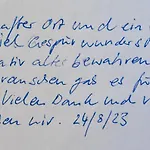 after Ort und ein
iel Gespür wunders
ativ altes bewahren
ranschen gab es fü
Vielen Dank und v
en wir. 24/8/23